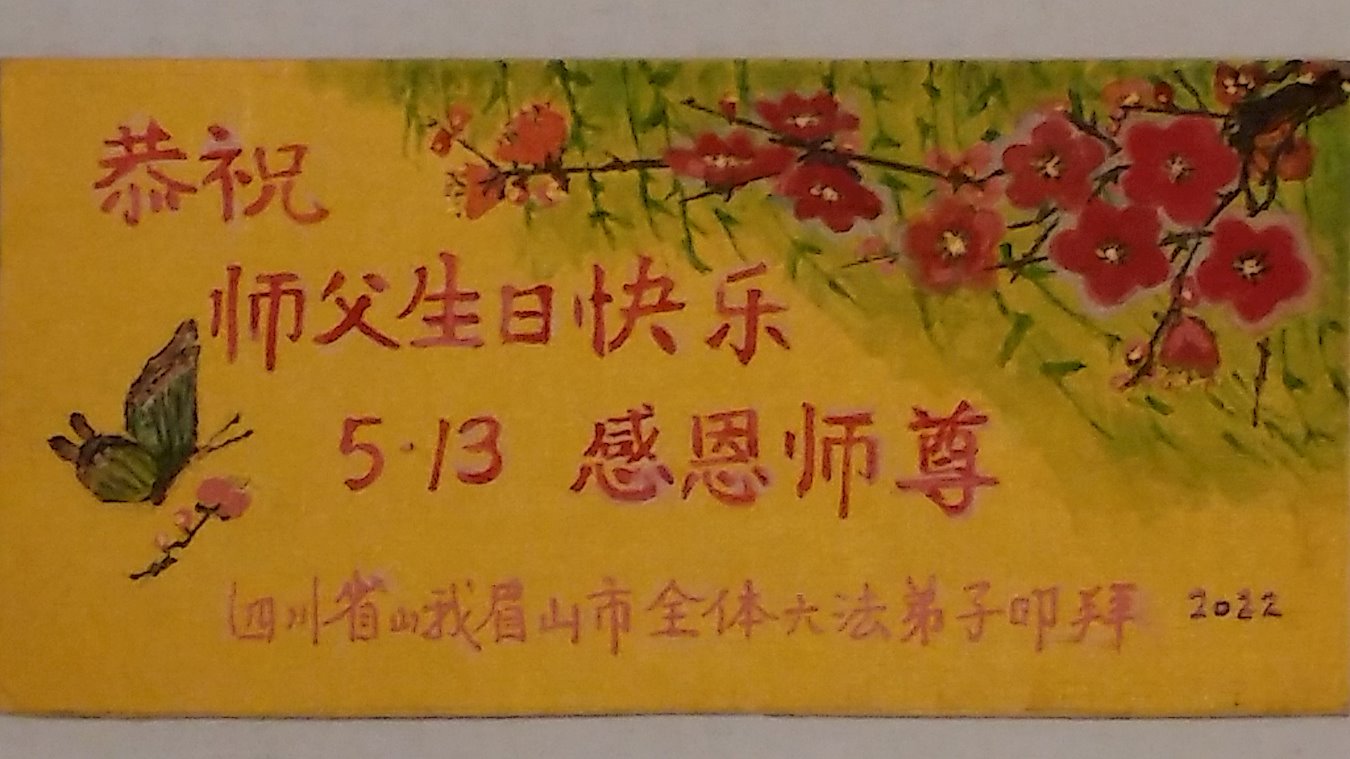 恭祝
师父生日快乐
5·13 感恩师尊
四川省峨眉山市全体大法弟子叩拜 2022